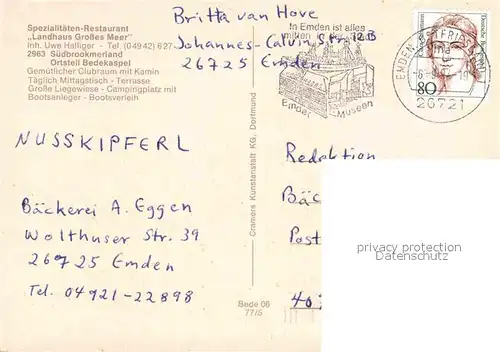 Spezialitäten-Restaurant
„Landhaus Großes Meer"
Inh. Uwe Halliger - Tel. (04942) 627
2963 Südbrookmerland
Ortsteil Bedekaspel
Gemütlicher Clubraum mit Kamin
Täglich Mittagstisch - Terrasse
Große Liegewiese - Campingplatz mit
Bootsanleger - Bootsverleih
Britta van Hove
Johannes-Calvin-Str. 12B
26725 Emden
In Emden ist alles
mitten
Emder Museen
EMDEN, OSTFRIESL
26721
80
Deutsche Bundespost
NUSSKIPFERL
Bäckerei A. Eggen
Wolthuser Str. 39
26725 Emden
Tel. 04921-22898
Cramers Kunstanstalt KG, Dortmund
Bede 06
77/5
Redaktion
Bäc
Post
40
privacy protection
Datenschutz